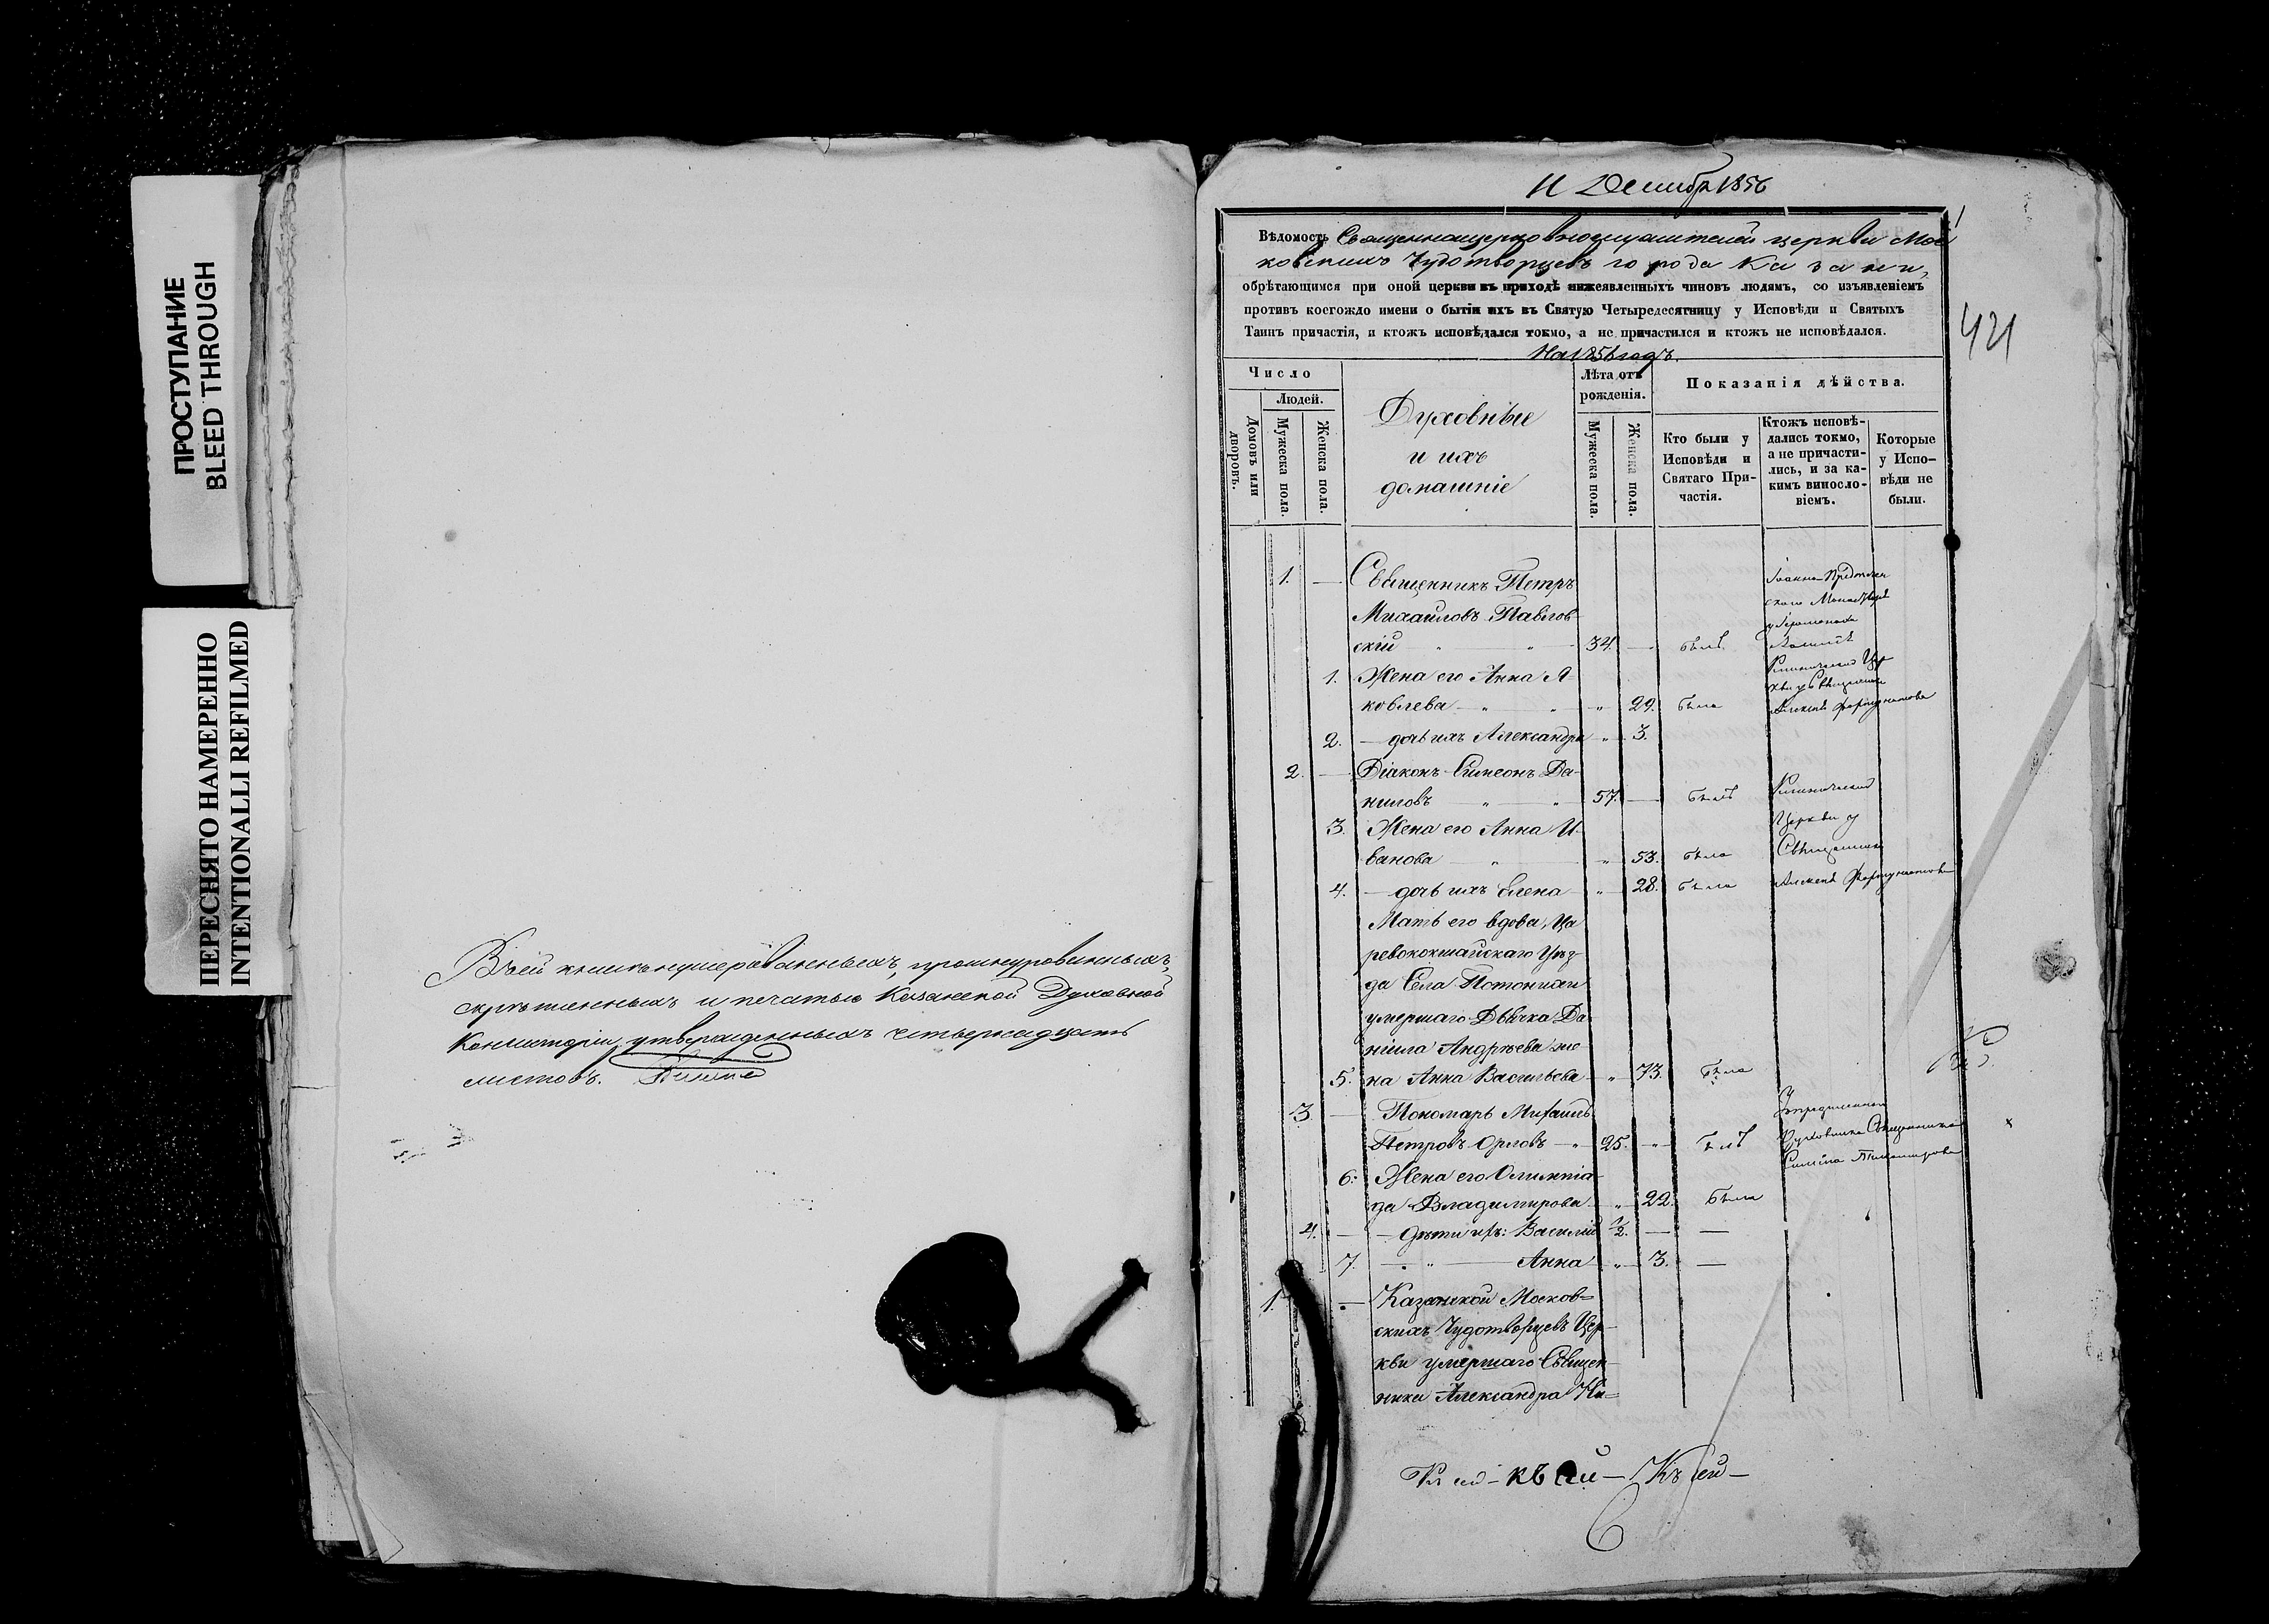 ПРОСТУПАНИЕ
BLEED THROUGH
ПЕРЕСНЯТО НАМЕРЕННО
INTENTIONALLI REFILMED
Въ сей книгѣ нумерованныхъ, прошнурованныхъ,
скрѣпленныхъ и печатью Казанской Духовной
Консисторіи утвержденныхъ четырнадцать
листовъ.
11 Декабря 1856
421
Вѣдомость Священноцерковнослужителей церкви Мос
ковскихъ Чудотворцевъ города Казани,
обрѣтающимся при оной церкви въ приходѣ нижеявленныхъ чиновъ людямъ, со изъявленіемъ
противъ коегождо имени о бытіи ихъ въ Святую Четыредесятницу у Исповѣди и Святыхъ
Таинъ причастія, и ктожъ исповѣдался токмо, а не причастился и ктожъ не исповѣдался.
На 1856 годъ.
Число
Людей.
Домовъ или дворовъ.
Мужеска пола.
Женска пола.
Духовные
и ихъ
домашніе
Лѣта отъ
рожденія.
Мужеска пола.
Женска пола.
Показанія дѣйства.
Кто были у
Исповѣди и
Святаго При-
частія.
Ктожъ исповѣ-
дались токмо,
а не причасти-
лись, и за ка-
кимъ винносло-
віемъ.
Которые
у Испо-
вѣди не
были.
1. — Священникъ Петръ
Михайловъ Павлов-
скій 34. — былъ
1. Жена его Анна Я-
ковлева " 29. была
2. — дочь ихъ Александра " 3.
2. — Діаконъ Симеонъ Да-
ниловъ 57. — былъ
3. Жена его Анна И-
ванова " 53. была
Церкви у
Священника
4. — дочь ихъ Елена " 28. была
Мать его вдова, Ца
ревококшайскаго Уѣз-
да Села
умершаго Дьячка Да-
ніила Андрѣева же-
5. на Анна Васильева " 73. была
3. — Пономарь Михаилъ
Петровъ Орловъ — " 25. " былъ
Духовника Священника
6. Жена его Олимпіа-
да Владимірова " 22. была
4. — — дѣти ихъ: Василій 1/2. — —
7. — " — Анна " 3. —
1. — Казанской Москов=
скихъ Чудотворцевъ Цер-
кви умершаго Священ-
ника Александра Ни=